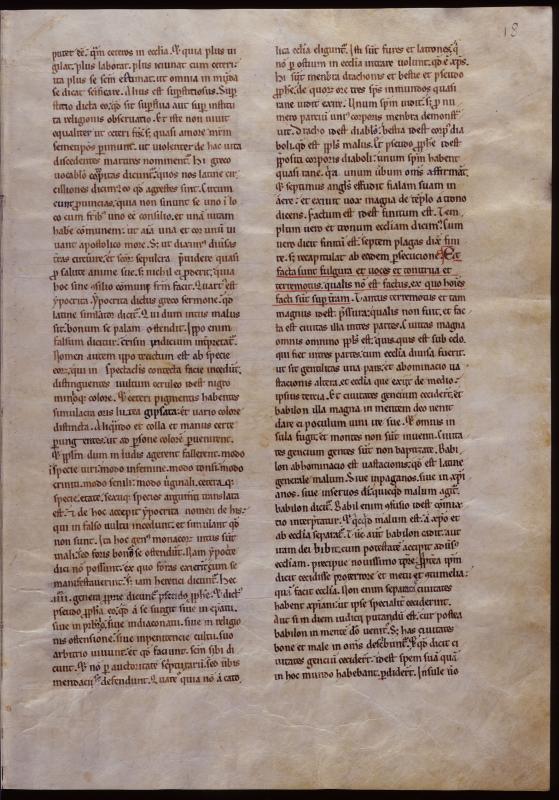 18
putet eē. qm̄ ceteros in ecclīa. Et quia plus ui
gilat. plus laborat. plus ieiunat cum ceteri.
ita plus se scm̄ estimat. ut omnia in mūda
se dicat scificare. Alius est supstitiosus. Sup
stitio dicta eo qd̄ sit supflua aut sup institu
ta religionis obseruatio. Et iste non uiuit
equaliter ut ceteri frs̄. sꝫ quasi amore mr̄m
semetipōs pimunt. ut uiolenter de hac uita
discedentes martires nominent̄. Hi greco
uocabl̄o dicunt̄. quos nos latine cir
cilliones dicim̄. eo qd̄ agrestes sint. Circum
eunt puincias. quia non sinunt se uno i lo
co cum frib̄ uno eē consilio. et unā uitam
habē comūnem. ut aīa una et cor unū ui
uant apostolico more. Sꝫ ut diximꝰ diūsas
t̄ras circuire. et scōr sepulcra puidere quasi
p salute anime sue. sꝫ nichil ei proerit. quia
hoc sine cōsilio cōmuni frm̄ facit. Quartꝰ est
ypocrita. Ypocrita dictus greco sermone. qd̄
latine simulator dicit̄. Qui dum intus malus
sit. bonum se palam ostendit. Ypo enim
falsum dicitur. crisin iudicium interptat̄.
Nomen autem ypocrite tractum est ab specie
eor. qui in spectaclis contecta facie incedūt.
distinguentes uultum ceruleo idest nigro
minioqꝫ colore. Et ceteri pigmentis habentes
simulacra oris lintea gipsata et uario colore
distincta. Aliqñdo et colla et manus certe
pungentes. ut ad psone colorē puenirent.
Et pplm̄ dum in ludis agerent fallerent. modo
ī specie uiri. modo in femine. modo tonsi. modo
criniti. modo senili. modo uginali. cetera qꝫ
specie. etate. sexuqꝫ species argumēti translata
est. et de hoc accepit ypocrita nomen de his.
qui in falso uultu incedunt. et simulant qd̄
non sunt. Ita hoc genꝰ monacor̄ intus sūt
mali. sed foris bonos se ostendūt. Nam ypocrite
dici nō possunt. ex quo foras exierit cum se
manifestauerint. Sꝫ iam heretici dicunt̄. Hec
iiii. genera ppriē dicunt̄ pseudo pphē. Et dictꝰ
pseudo pphā eo qd̄ a se surgit siue in episcopū.
siue in prbr̄o. siue in diaconatū. siue in religio
nis ostensione. siue in penitencie cultu. suo
arbitrio uiuunt. et qd̄ faciunt. scm̄ sibi di
cunt. Et nō p auctoritate scripturarū. sed ūbis
mendacii defendunt. Quare quia nō ā cato
lica ecclīa eligunt̄. Isti sūt fures et latrones. q̄
nō p ostium in ecclīa intrare uolunt. qd̄ ē xp̄s.
Hi sūt menbra drachonis et bestie et pseudo
pphe. de quor̄ ore tres sps̄ inmundos quasi
rane uidit exire. Unum spm̄ uidit. sꝫ p nu
mero partiū unīꝰ corporis menbra demonstra
uit. Dracho idest diabolꝰ. bestia idest corpꝰ dia
boli. qd̄ est ppl̄s malus. Et pseudo pphē idest
ppositi corporis diaboli. unum spm̄ habent
quasi rane. qa unum ūbum om̄s affirmāt.
Et septimus angl̄s effudit fialam suam in
aere. et exiuit uox magna de templo a trono
dicens. Factum est idest finitum est. Tem
plum uero et tronum ecclīam dicimꝰ. Sum
uero dicit finitū est. septem plagas dīx finī
re. sꝫ recapitulat ab eadem psecucione. Et
facta sunt fulgura et uoces et tonitrua et
terremotus. qualis nō est factus. ex quo hoīes
facti sūt sup t̄ram. Tantus terremotus et tam
magnus idest pssura. qualis non fuit. et fac
ta est ciuitas illa in tres partes. Ciuitas magna
omnis omnino ppl̄s est. quis quis est sub celo.
qui fiet in tres partes. cum ecclīa diuisa fuerit.
ut sit gentilitas una pars. et abominacio ua
stacionis altera. et ecclīa que exiit de medio
ipsius tercia. Et ciuitates gencium ceciderūt. et
babilon illa magna in mentem deo uenit
dare ei poculum uini ire sue. Et omnis in
sula fugit. et montes non sūt inuenti. Ciuita
tes gencium gentes sūt non baptizate. Babi
lon abhominacio est uastacionis. qd̄ est latine
generale malum. Siue in paganos. siue in xp̄i
anos. siue in seruos dī. quicqd̄ malum agit̄.
babilon dicit̄. Babil enim cōfusio idest cōmix
tio interpretatur. Et qicqd̄ malum est. ā xp̄o et
ab ecclīa separat̄. Tūc aut babilon cadit. aut
iram dei bibit. cum potestatē accipit aduīsꝰ
ecclīam. precipue nouissimo tp̄re. Pp̄terea ipm̄
dicit cecidisse propter ore et metu et gimelia.
quā facit ecclīa. Non enim separati ciuitates
habent xp̄iani. ut ipse specialit̄ ceciderint.
Aut si in diem iudicij putandū est. cur postea
babilon in mente dō uenit. Sꝫ has ciuitates
bone et male in om̄s describunt̄. Et qd̄ dicit ci
uitates genciū ceciderūt. idest spem suā quā
in hoc mundo habebant. pdiderūt. Insule uō